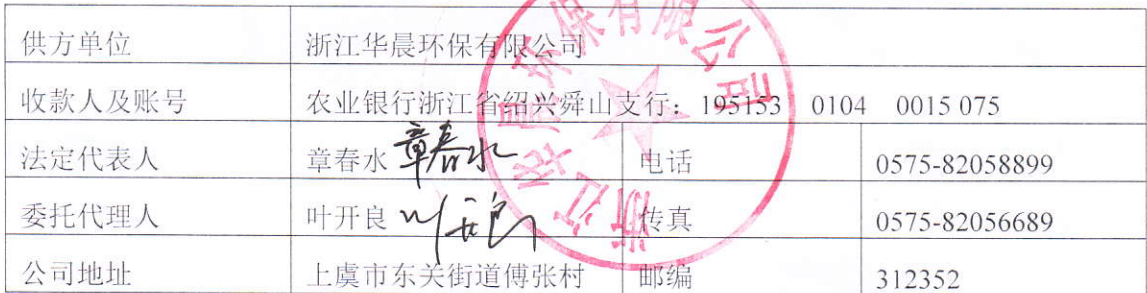 供方单位 浙江华晨环保有限公司
收款人及账号 农业银行浙江省绍兴舜山支行：195153 0104 0015 075
法定代表人 章春水 章春水 电话 0575-82058899
委托代理人 叶开良 叶开良 传真 0575-82056689
公司地址 上虞市东关街道傅张村 邮编 312352
浙江华晨环保有限公司